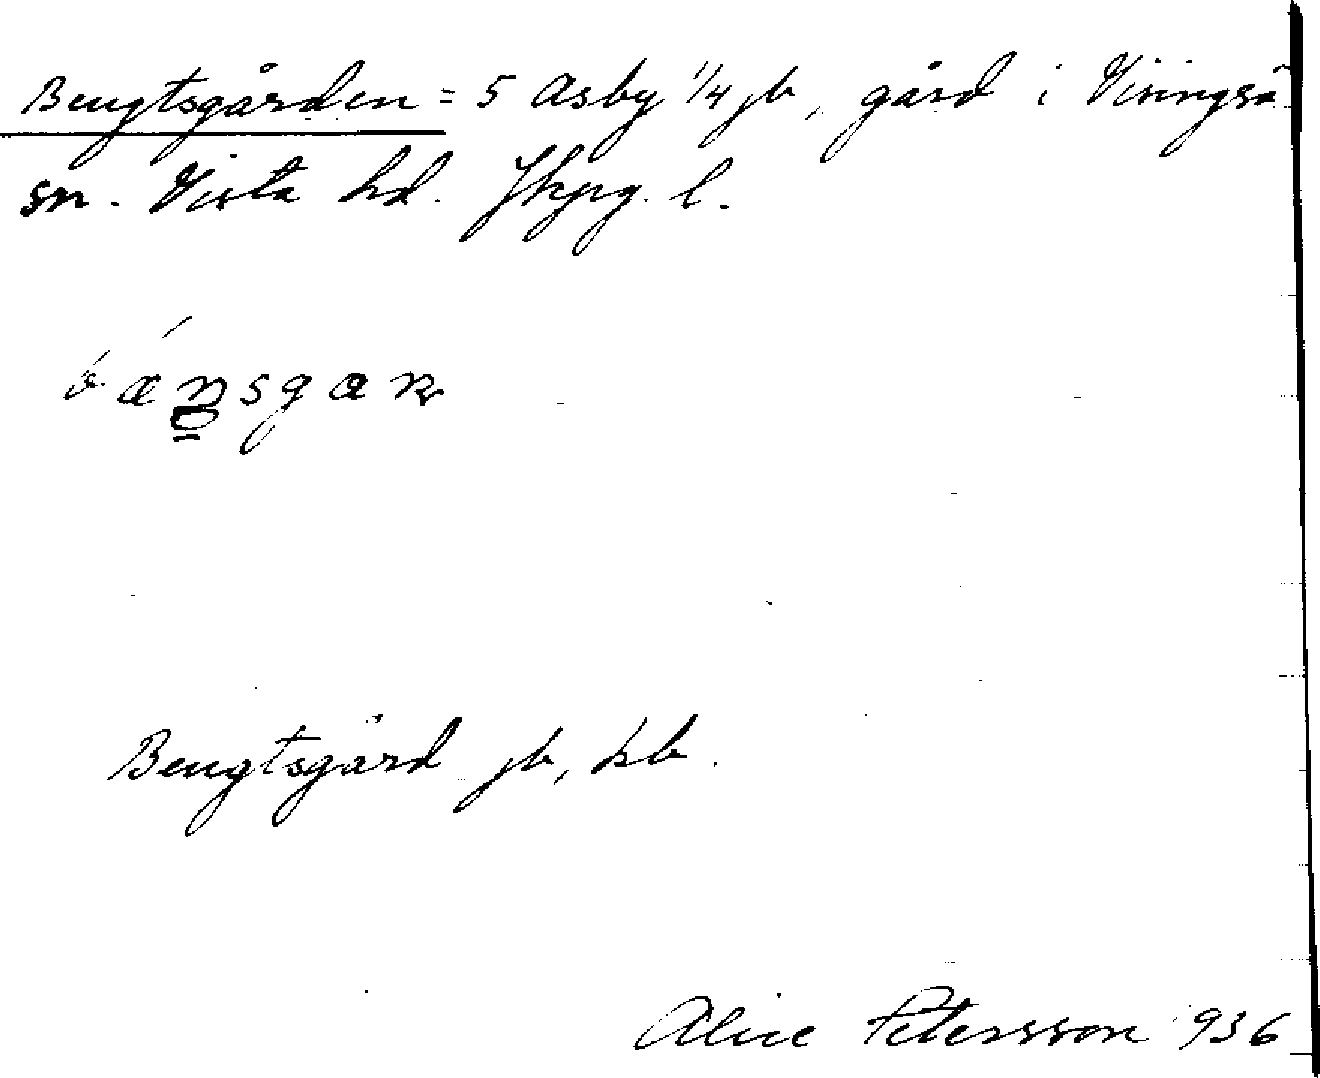 Bengtsgården = 5 Åsby 1/4 jb, gård i Visingsö
sn. Vista hd. Jkpg. l.
Bengtsgård jb, hb.
Alice Petersson 1936